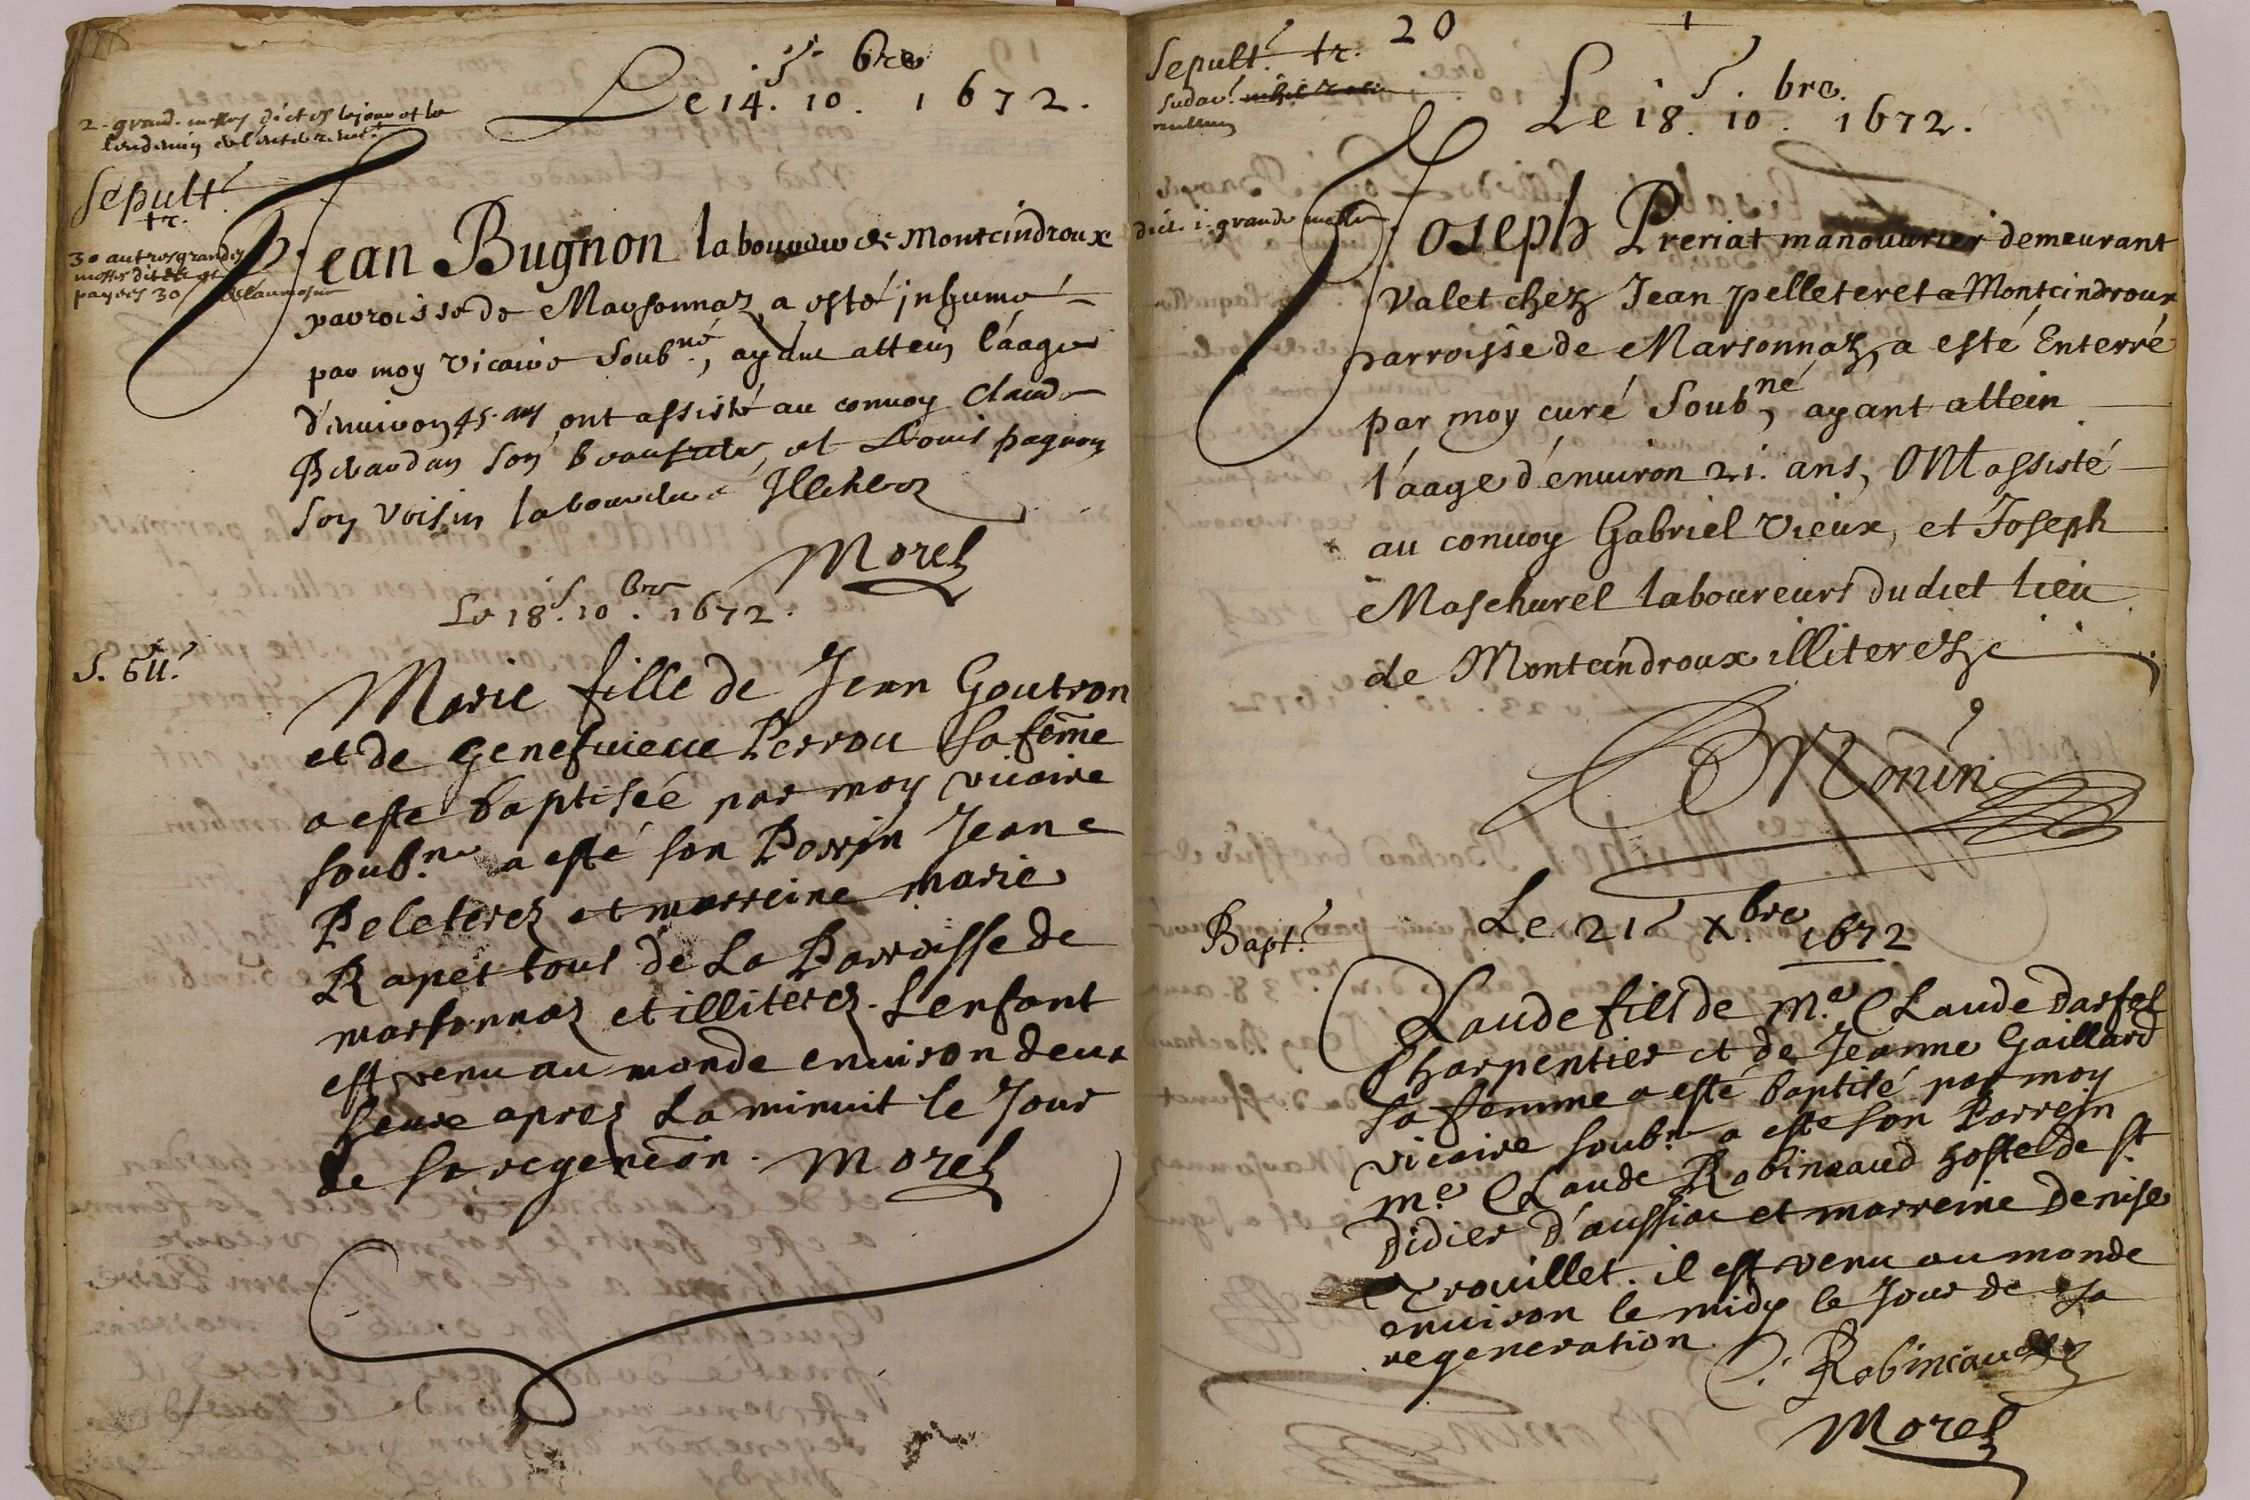 Le 14.ᔆ 10.bre 1672.
2. grand. messes dictes le jour et le
lendemain de l'enterrement
Sepult.
tr.
30 autres grandes
messes dites et
payées 30
Jean Bugnon laboureur de Montcindroux
parroisse de Marsonnaz, a esté inhumé
par moy vicaire soubné, ayant attein l'áage
d'enuiron 45. ans, ont assisté au conuoy Claude
son beaufrere, et Louis pagnon
son voisin laboureur Illeterez
Morel
Le 18.ᔆ 10.bre 1672.
S. Bt.
Marie fille de Jean Goutron
et de Genefuieue Perrou sa feme
a este baptisée par moy vicaire
soub.ne a esté son Parrin Jean
Peleterez et marreine marie
Rapet tous de La Parroisse de
marsonnaz et illiterez. Lenfant
est venu au monde enuiron deux
heure aprez La minuit le Jour
de sa regeneon. Morel
20
Sepult. tr.
nullum
Le 18.ᔆ 10.bre. 1672.
dict. 1. grande messe
Joseph Preriat manouurier demeurant
valet chez Jean pelleteret a Montcindroux
parroisse de Marsonnaz, a esté Enterré
par moy curé soubné, ayant attein
l'áage d'enuiron 21. ans, ont assisté
au conuoy Gabriel Vieux, et Joseph
Maschurel laboureurs dudict lieu
de Montcindroux illiterez
Monin
Bapt.
Le 21ᔆ X.bre 1672
Claude fils de M.e Claude Darfel
Charpentier et de Jeanne Gaillard
sa femme a esté baptisé par moy
vicaire soub.ne a este son Parrein
M.e Claude Robineaud hoste de St
Didier d'aussiac et marreine Denise
Trouillet. il est venu au monde
enuiron le midy le Jour de sa
regeneration.
C. Robineaud
Morel